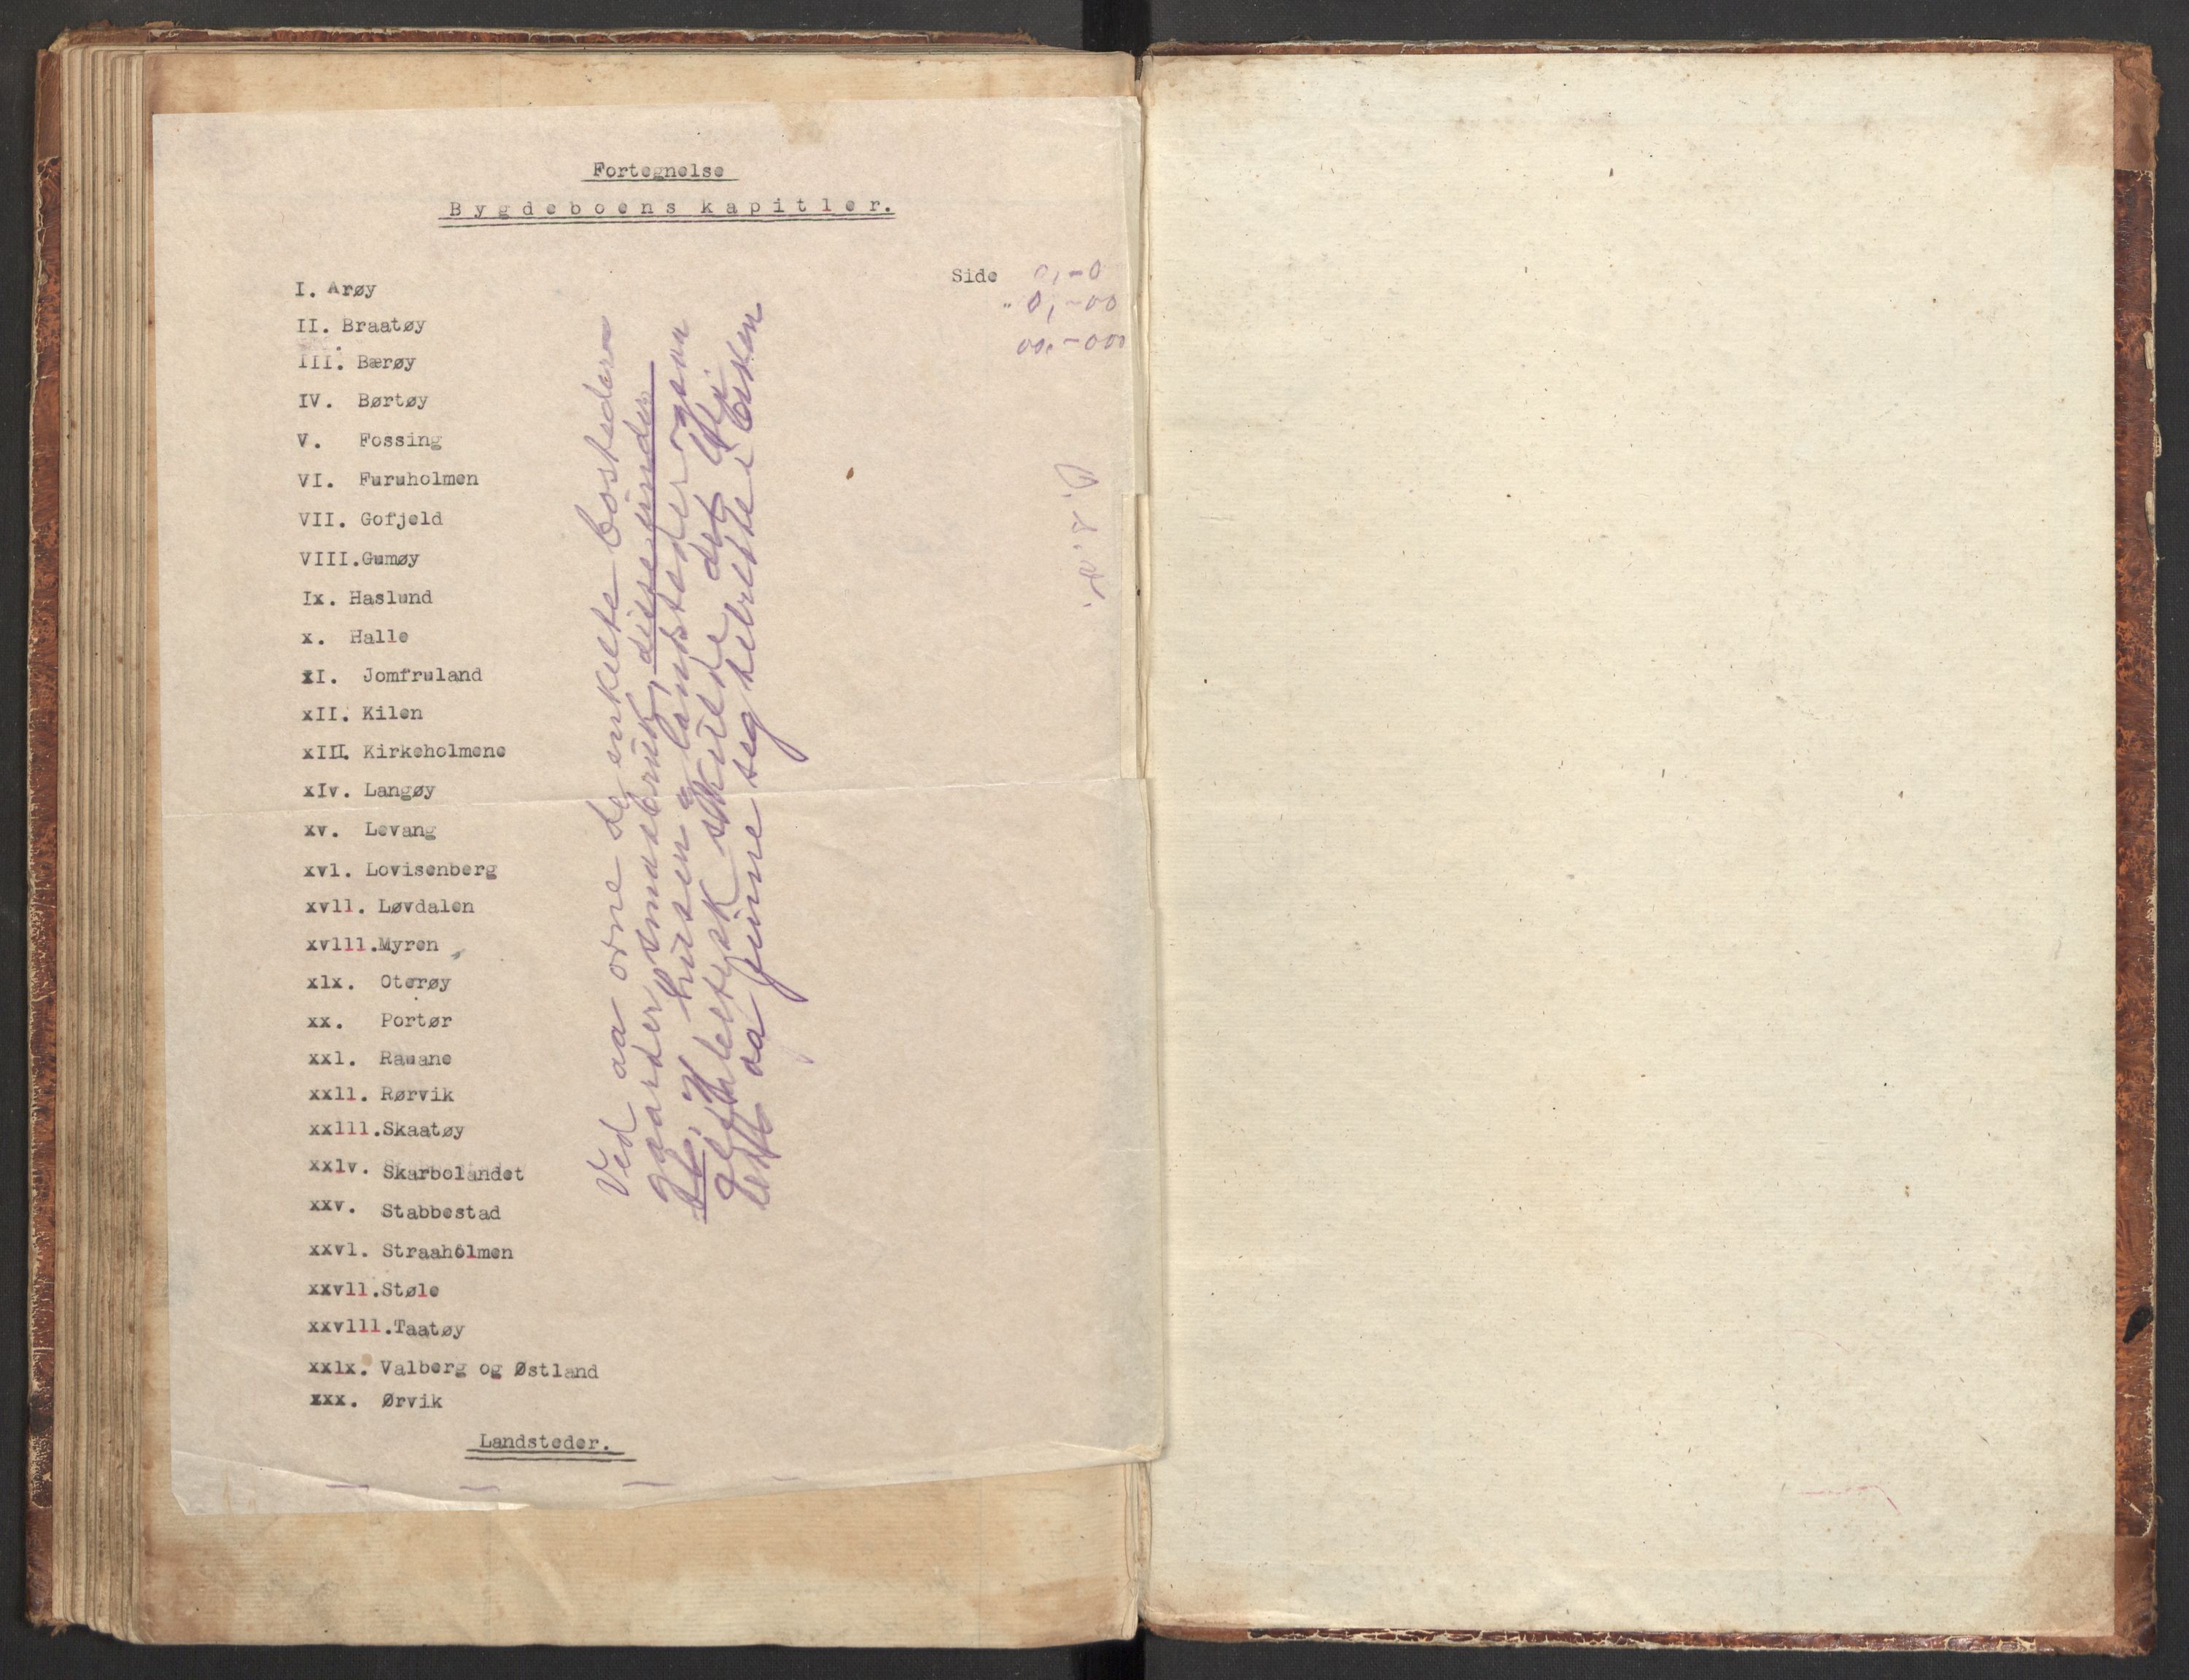 Fortegnelse
Bygdeboens kapitler.
Side 0,-0
" 0,-00
00,-000
I. Arøy
II. Braatøy
III. Bærøy
IV. Børtøy
V. Fossing
VI. Furuholmen
VII. Gofjeld
VIII.Gumøy
Ix. Haslund
x. Halle
xI. Jomfruland
xII. Kilen
xIII. Kirkeholmene
xIv. Langøy
xv. Levang
xvl. Lovisenberg
xvll. Løvdalen
xvlll.Myren
xlx. Oterøy
xx. Portør
xxl. Rauane
xxll. Rørvik
xxlll.Skaatøy
xxlv. Skarbolandet
xxv. Stabbestad
xxvl. Straaholmen
xxvll.Støle
xxvlll.Taatøy
xxlx. Valberg og Østland
xxx. Ørvik
Landsteder.
Ved aa orne de enkelte bosteder
gaarder, smaabruk, disse under
husen & landsteder
skilde det
lett aa finne seg tilrette i